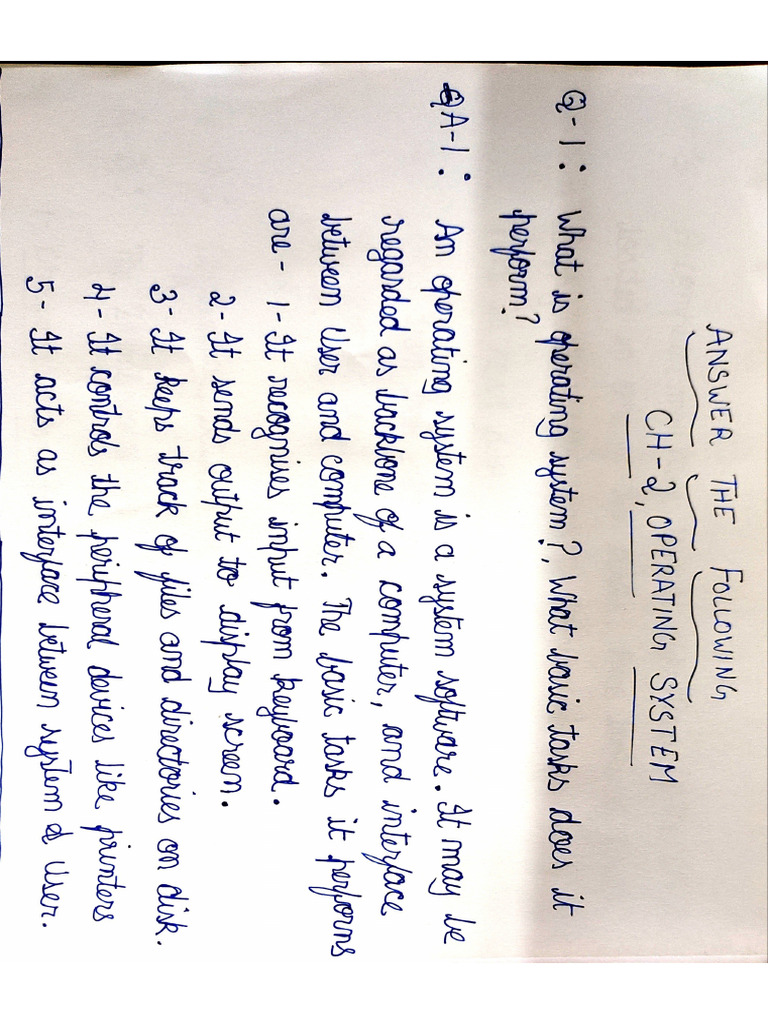 ANSWER THE FOLLOWING
CH-2, OPERATING SYSTEM
Q-1: What is operating system?, What basic tasks does it
perform?
A-1: An operating system is a system software. It may be
regarded as backbone of a computer, and interface
between User and computer. The basic tasks it performs
are- 1-It recognises input from keyboard.
2-It sends output to display screen.
3-It keeps track of files and directories on disk.
4-It controls the peripheral devices like printers
5-It acts as interface between system & User.